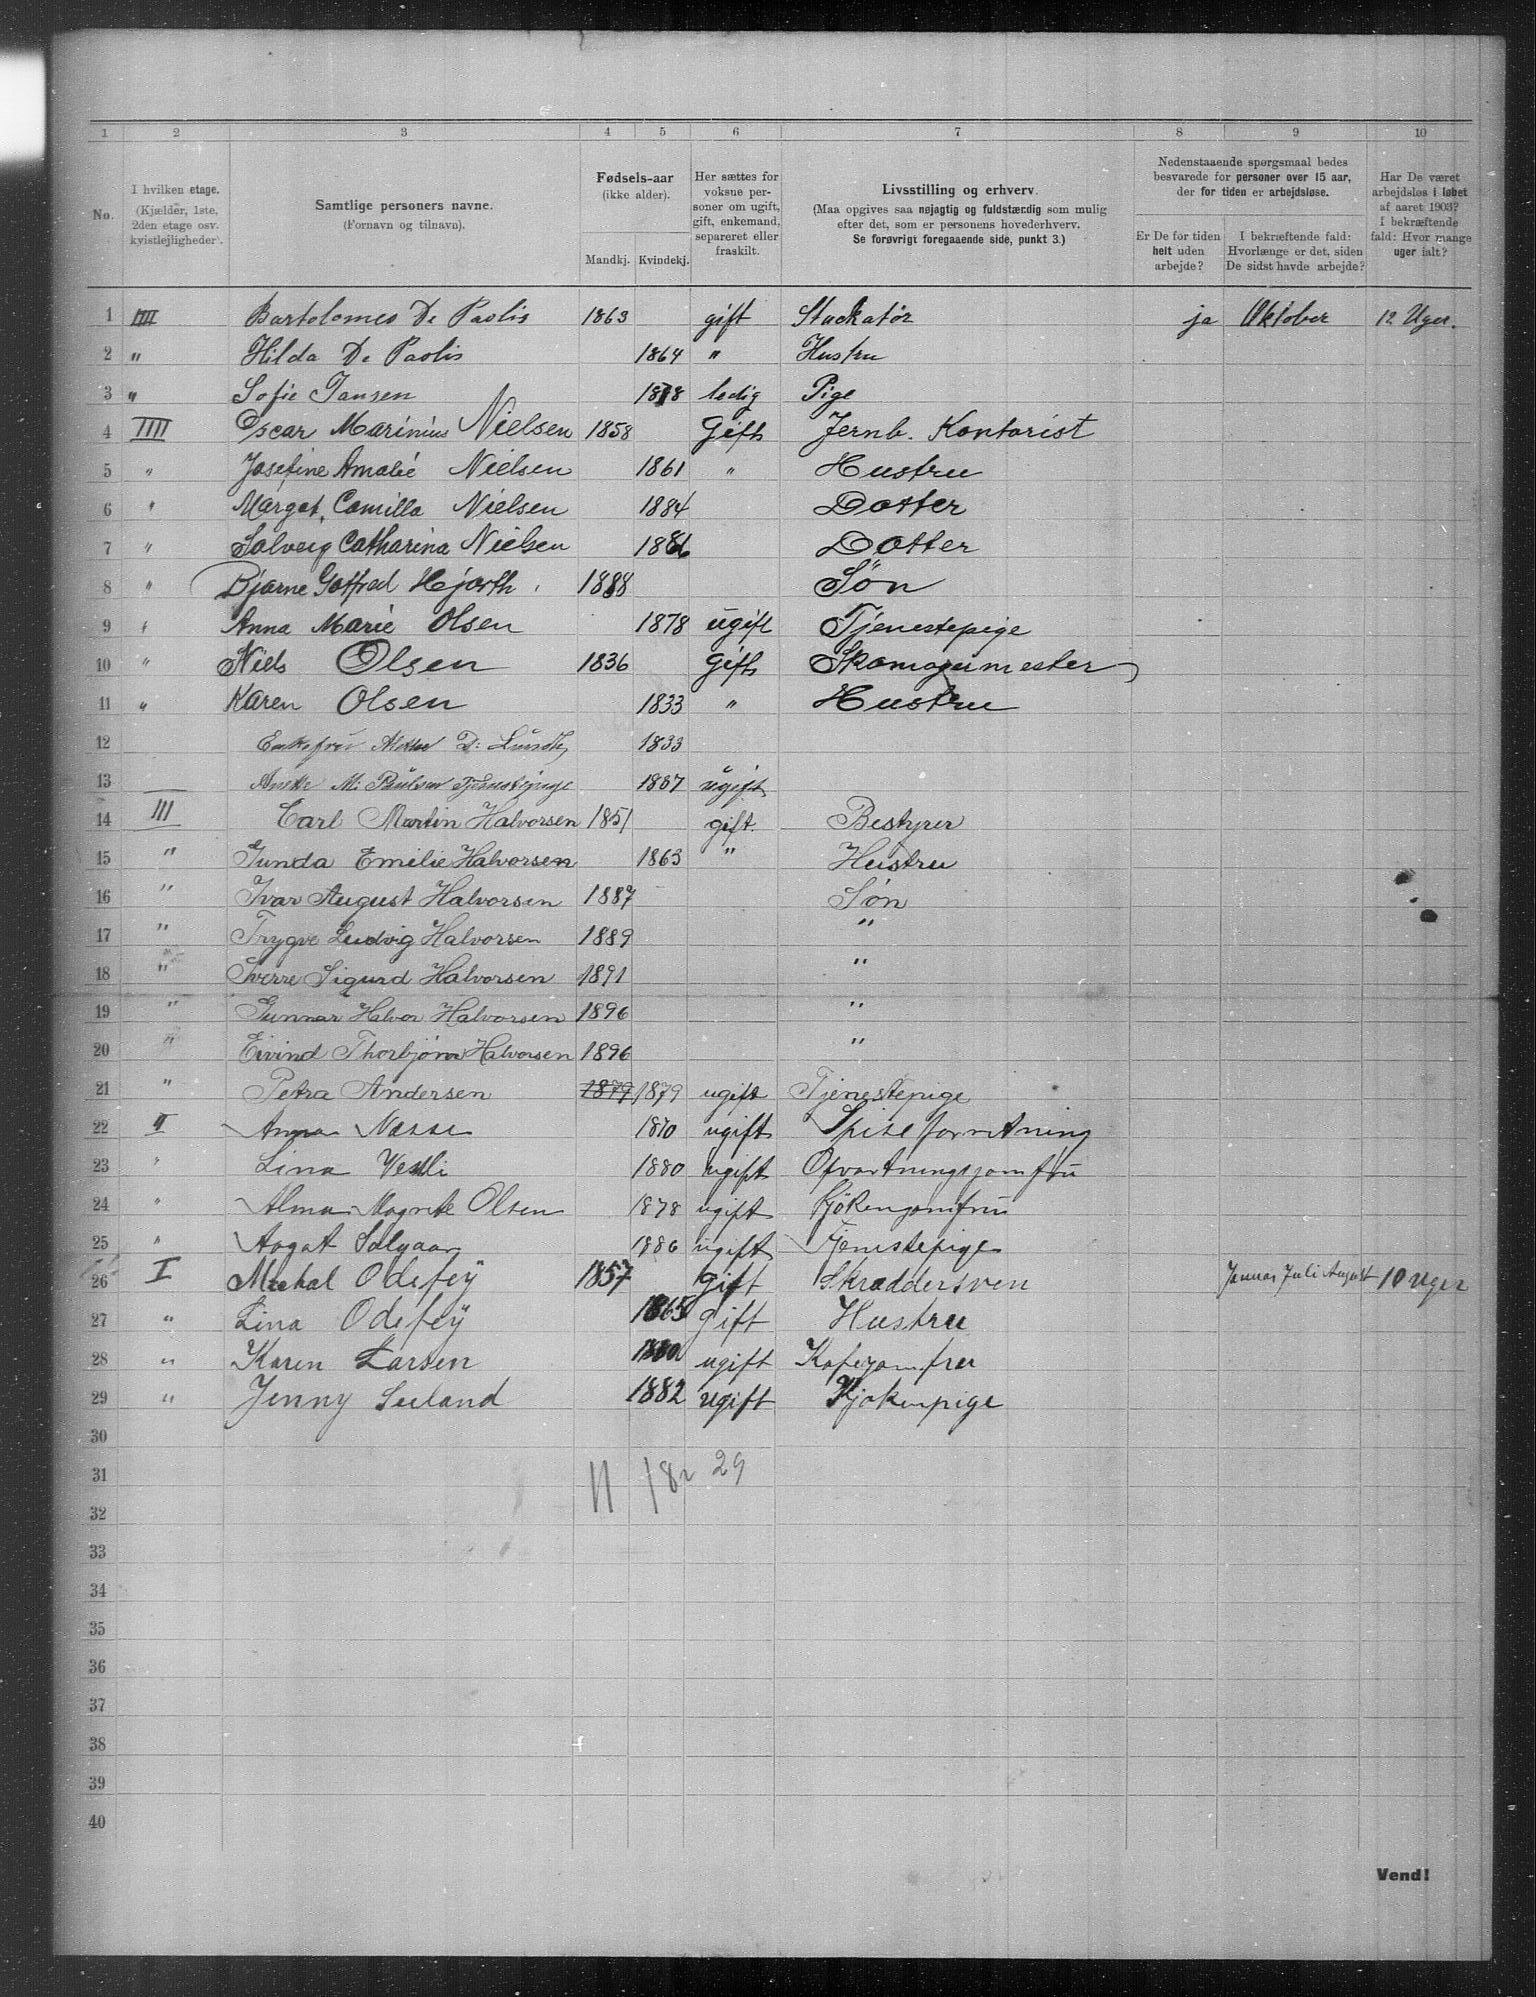 1 2 3 4 5 6 7 8 9 10
No.
I hvilken etage.
(Kjælder, 1ste,
2den etage osv.
kvistlejligheder).
Samtlige personers navne.
(Fornavn og tilnavn).
Fødsels-aar
(ikke alder).
Mandkj. Kvindekj.
Her sættes for
voksne per-
soner om ugift,
gift, enkemand,
separeret eller
fraskilt.
Livsstilling og erhverv.
(Maa opgives saa nøjagtig og fuldstændig som mulig
efter det, som er personens hovederhverv.
Se forøvrigt foregaaende side, punkt 3.)
Nedenstaaende spørgsmaal bedes
besvarede for personer over 15 aar,
der for tiden er arbejdsløse.
Er De for tiden
helt uden
arbejde?
I bekræftende fald:
Hvorlænge er det, siden
De sidst havde arbejde?
Har De været
arbejdsløs i løbet
af aaret 1903?
I bekræftende
fald: Hvor mange
uger ialt?
1 IIII Bartolomeo De Paolis 1863 gift Stuckatør ja Oktober 12 Uger.
2 " Hilda De Paolis 1864 " Hustru
3 " Sofie Jansen 1878 ledig Pige
4 IIII Oscar Marinius Nielsen 1858 Gift Jernb. Kontorist
5 " Josefine Amalie Nielsen 1861 " Hustru
6 " Margot Camilla Nielsen 1884 Dotter
7 " Solveig Catharina Nielsen 1886 Dotter
8 " Bjarne Gotfred Hjorth 1888 Søn
9 " Anna Marie Olsen 1878 ugift Tjenestepige
10 " Niels Olsen 1836 Gift Skomagermester
11 " Karen Olsen 1833 " Hustru
12 Enkefru D. 1833
13 M. Paulsen Tjenestepige 1887 ugift
14 III Carl Martin Halvorsen 1851 gift. Bestyrer
15 " Gunda Emilie Halvorsen 1863 " Hustru
16 " Ivar August Halvorsen 1887 Søn
17 " Trygve Ludvig Halvorsen 1889 "
18 " Sverre Sigurd Halvorsen 1891 "
19 " Gunnar Halvor Halvorsen 1896 "
20 " Eivind Thorbjørn Halvorsen 1896 "
21 " Petra Andersen 1879 1879 ugift Tjenestepige
22 II Anna Næsse 1870 ugift Spiseforretning
23 " Lina Vestli 1880 ugift Opvartningsjomfru
24 " Alma Magrete Olsen 1878 ugift Kjökenjomfru
25 " Aagot Solgaar 1886 ugift Tjenestepige
26 I Mickal Odefey 1857 gift Skræddersven Januar Juli August 10 Uger
27 " Lina Odefey 1865 gift Hustru
28 " Karen Larsen 1880 ugift Kafejomfru
29 " Jenny Seeland 1882 ugift Kjøkenpige
30
31 11 18 29
32
33
34
35
36
37
38
39
40
Vend!